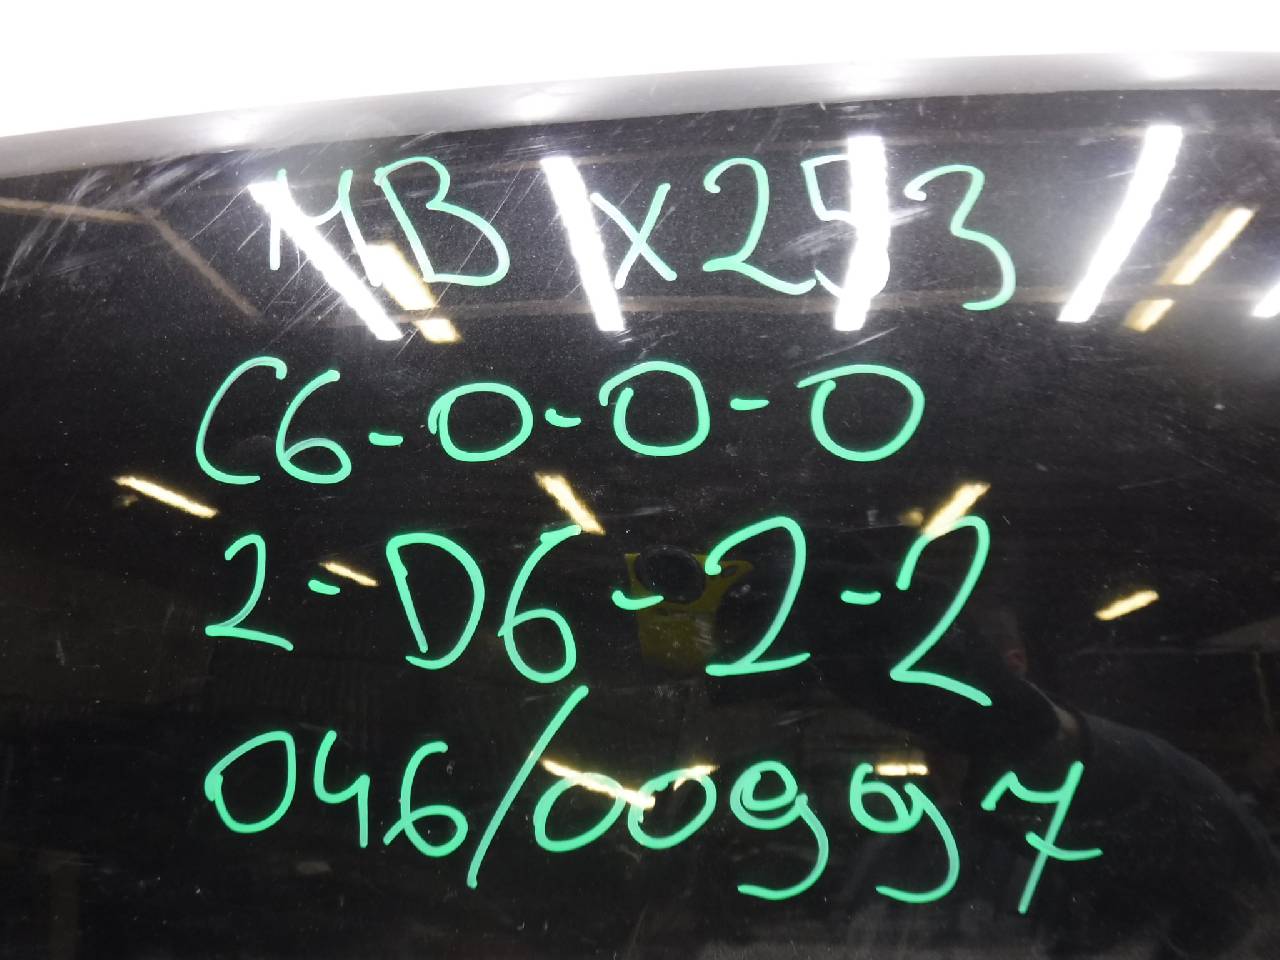 MB X253
C6-0-0-0
2-D6-2-2
046/00997